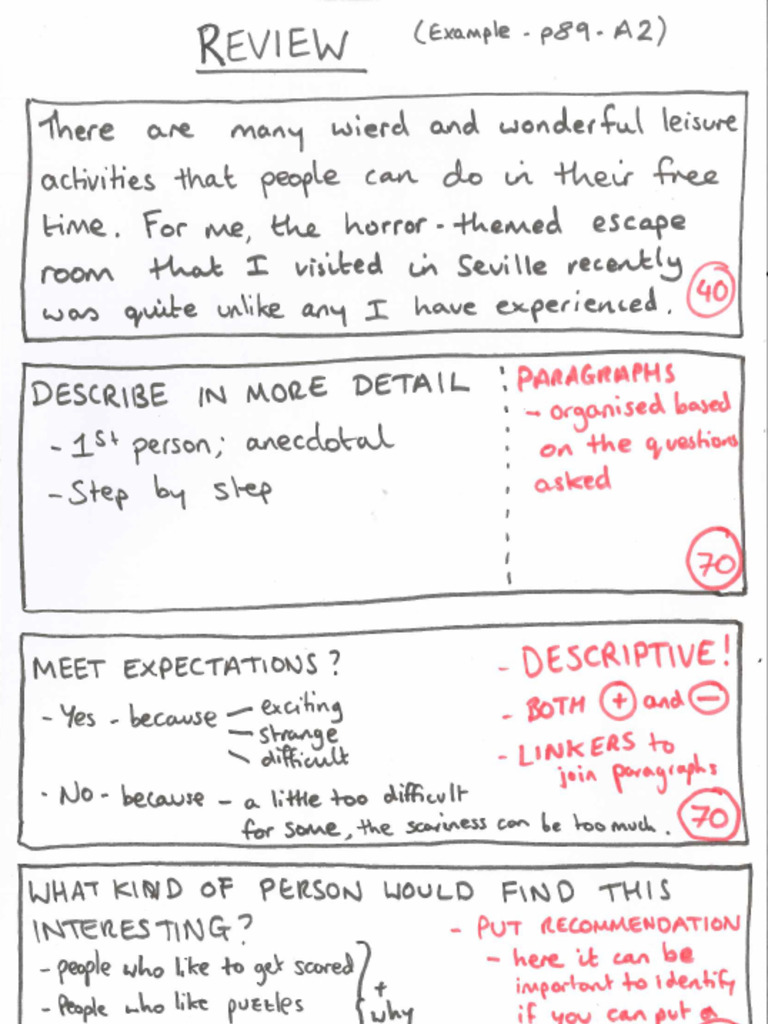 REVIEW (Example - p89 - A2)
There are many wierd and wonderful leisure
activities that people can do in their free
time. For me, the horror-themed escape
room that I visited in Seville recently
was quite unlike any I have experienced.
40
DESCRIBE IN MORE DETAIL
- 1st person; anecdotal
- Step by step
PARAGRAPHS
- organised based
on the questions
asked
70
MEET EXPECTATIONS?
- Yes - because - exciting
- strange
- difficult
- No - because - a little too difficult
for some, the scariness can be too much.
- DESCRIPTIVE!
- BOTH + and -
- LINKERS to
join paragraphs
70
WHAT KIND OF PERSON WOULD FIND THIS
INTERESTING?
- people who like to get scared
- People who like puzzles
+
why
- PUT RECOMMENDATION
- here it can be
important to identify
if you can put a